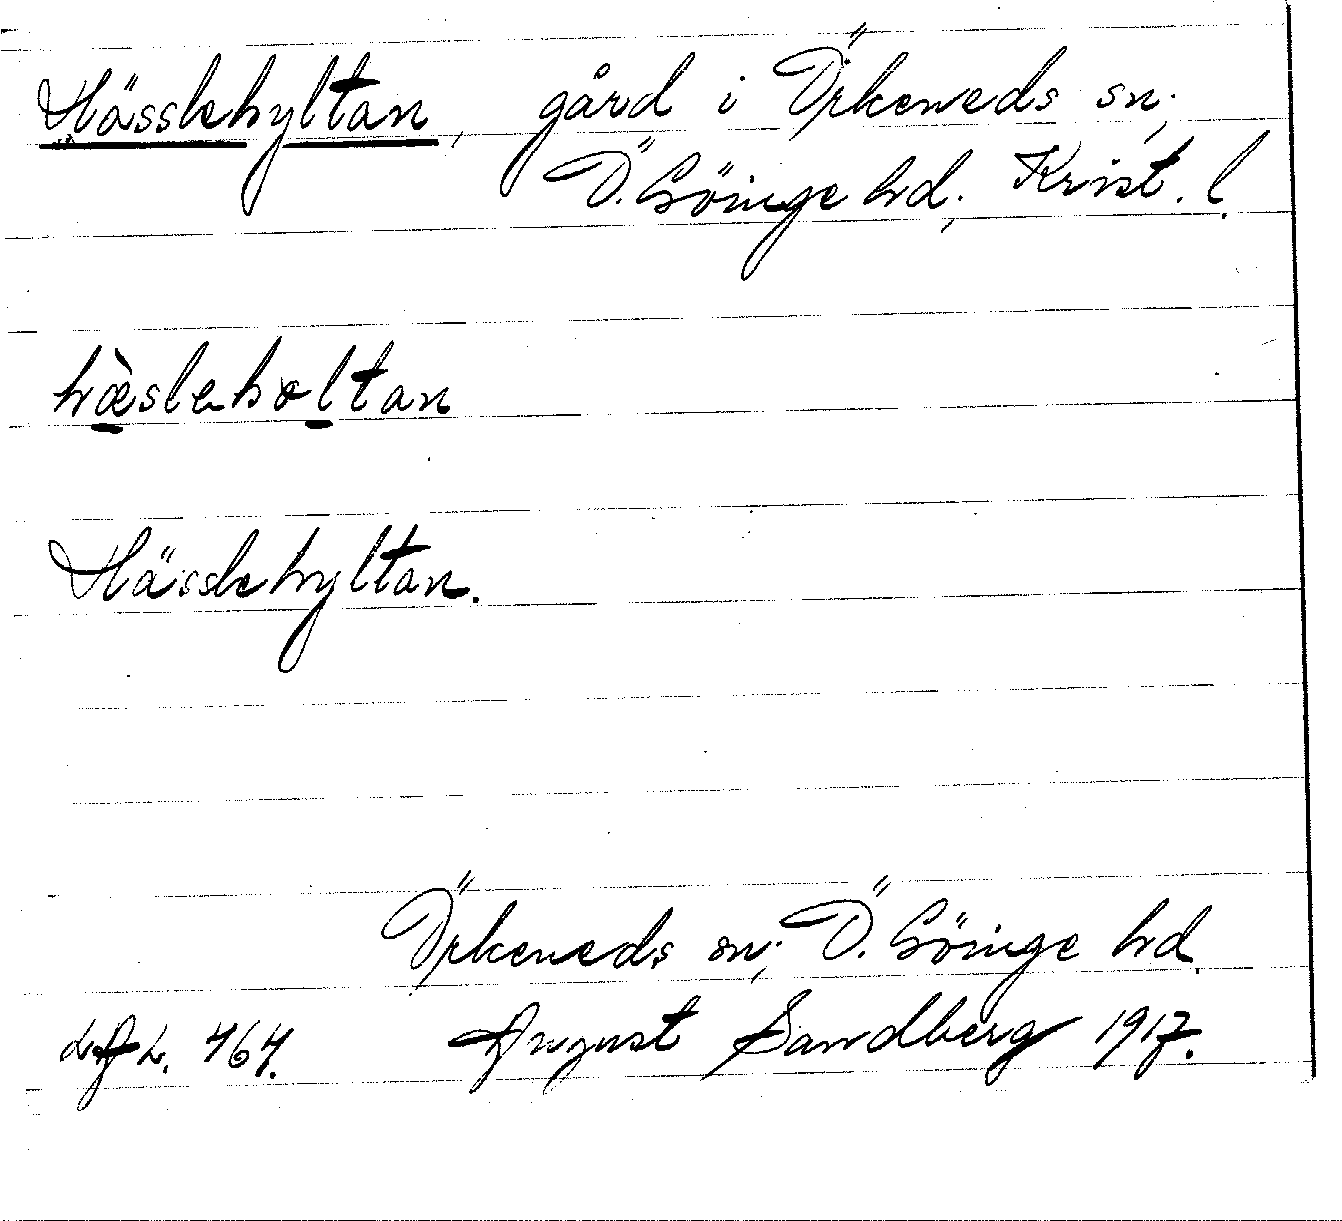 Hässlehyltan, gård i Örkeneds sn;
Ö. Göinge hd; Krist. l.
hæ̀slehol̠tan
Hässlehyltan.
Örkeneds sn; Ö. Göinge hd.
464. August Sandberg 1917.